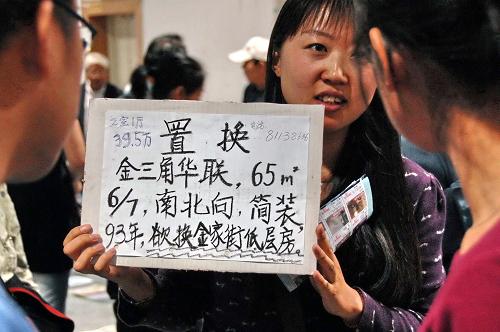 2室1厅
39.5万
置换
电话
金三角华联，65m²
6/7，南北向，简装，
93年，欲换金家街低层房。